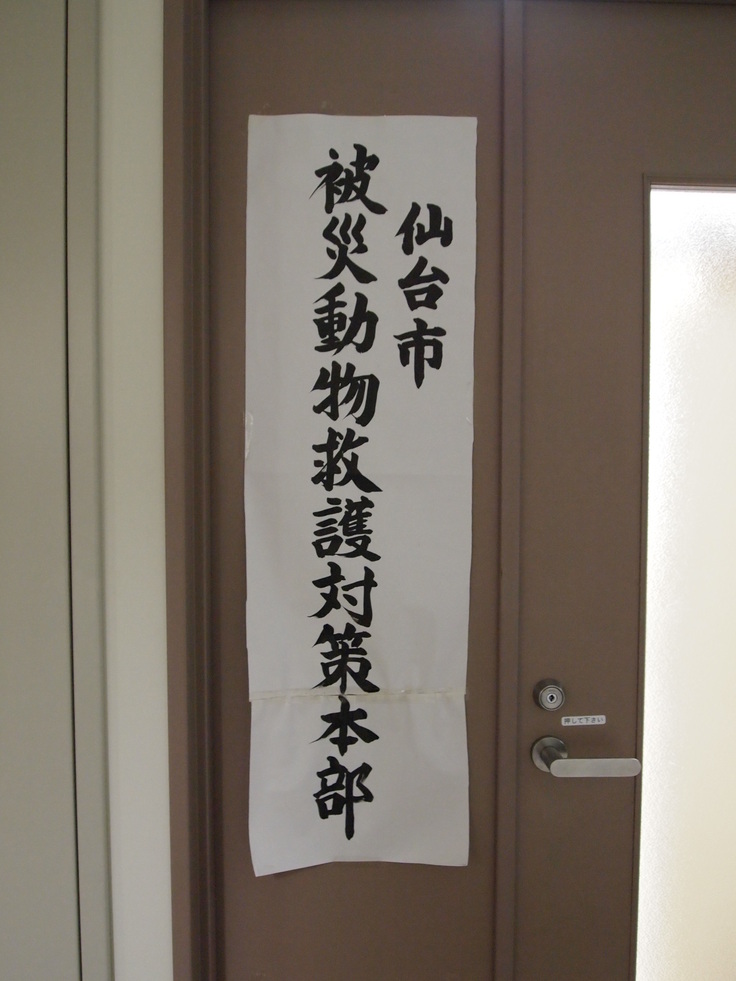 仙台市
被災動物救護対策本部
押して下さい